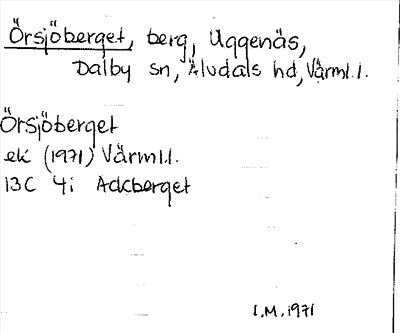 Örsjöberget, berg, Uggenäs,
Dalby sn, Älvdals hd, Värml.l.
Örsjöberget
ek (1971) Värml.l.
13C 4i Ackberget
I.M. 1971